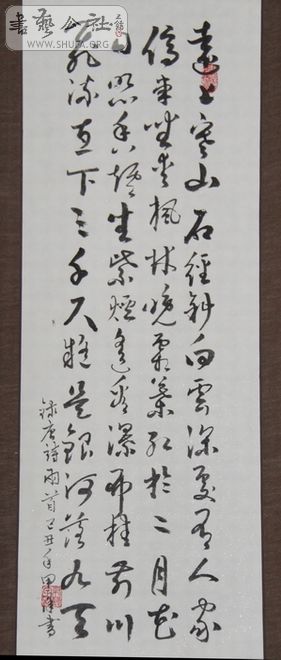 書藝公社
WWW.SHUFA.ORG
遠上寒山石徑斜白雲深處有人家
停車坐愛楓林晚霜葉紅於二月花
日照香爐生紫煙遙看瀑布挂前川
飛流直下三千尺疑是銀河落九天
錄唐詩兩首己丑年田
書